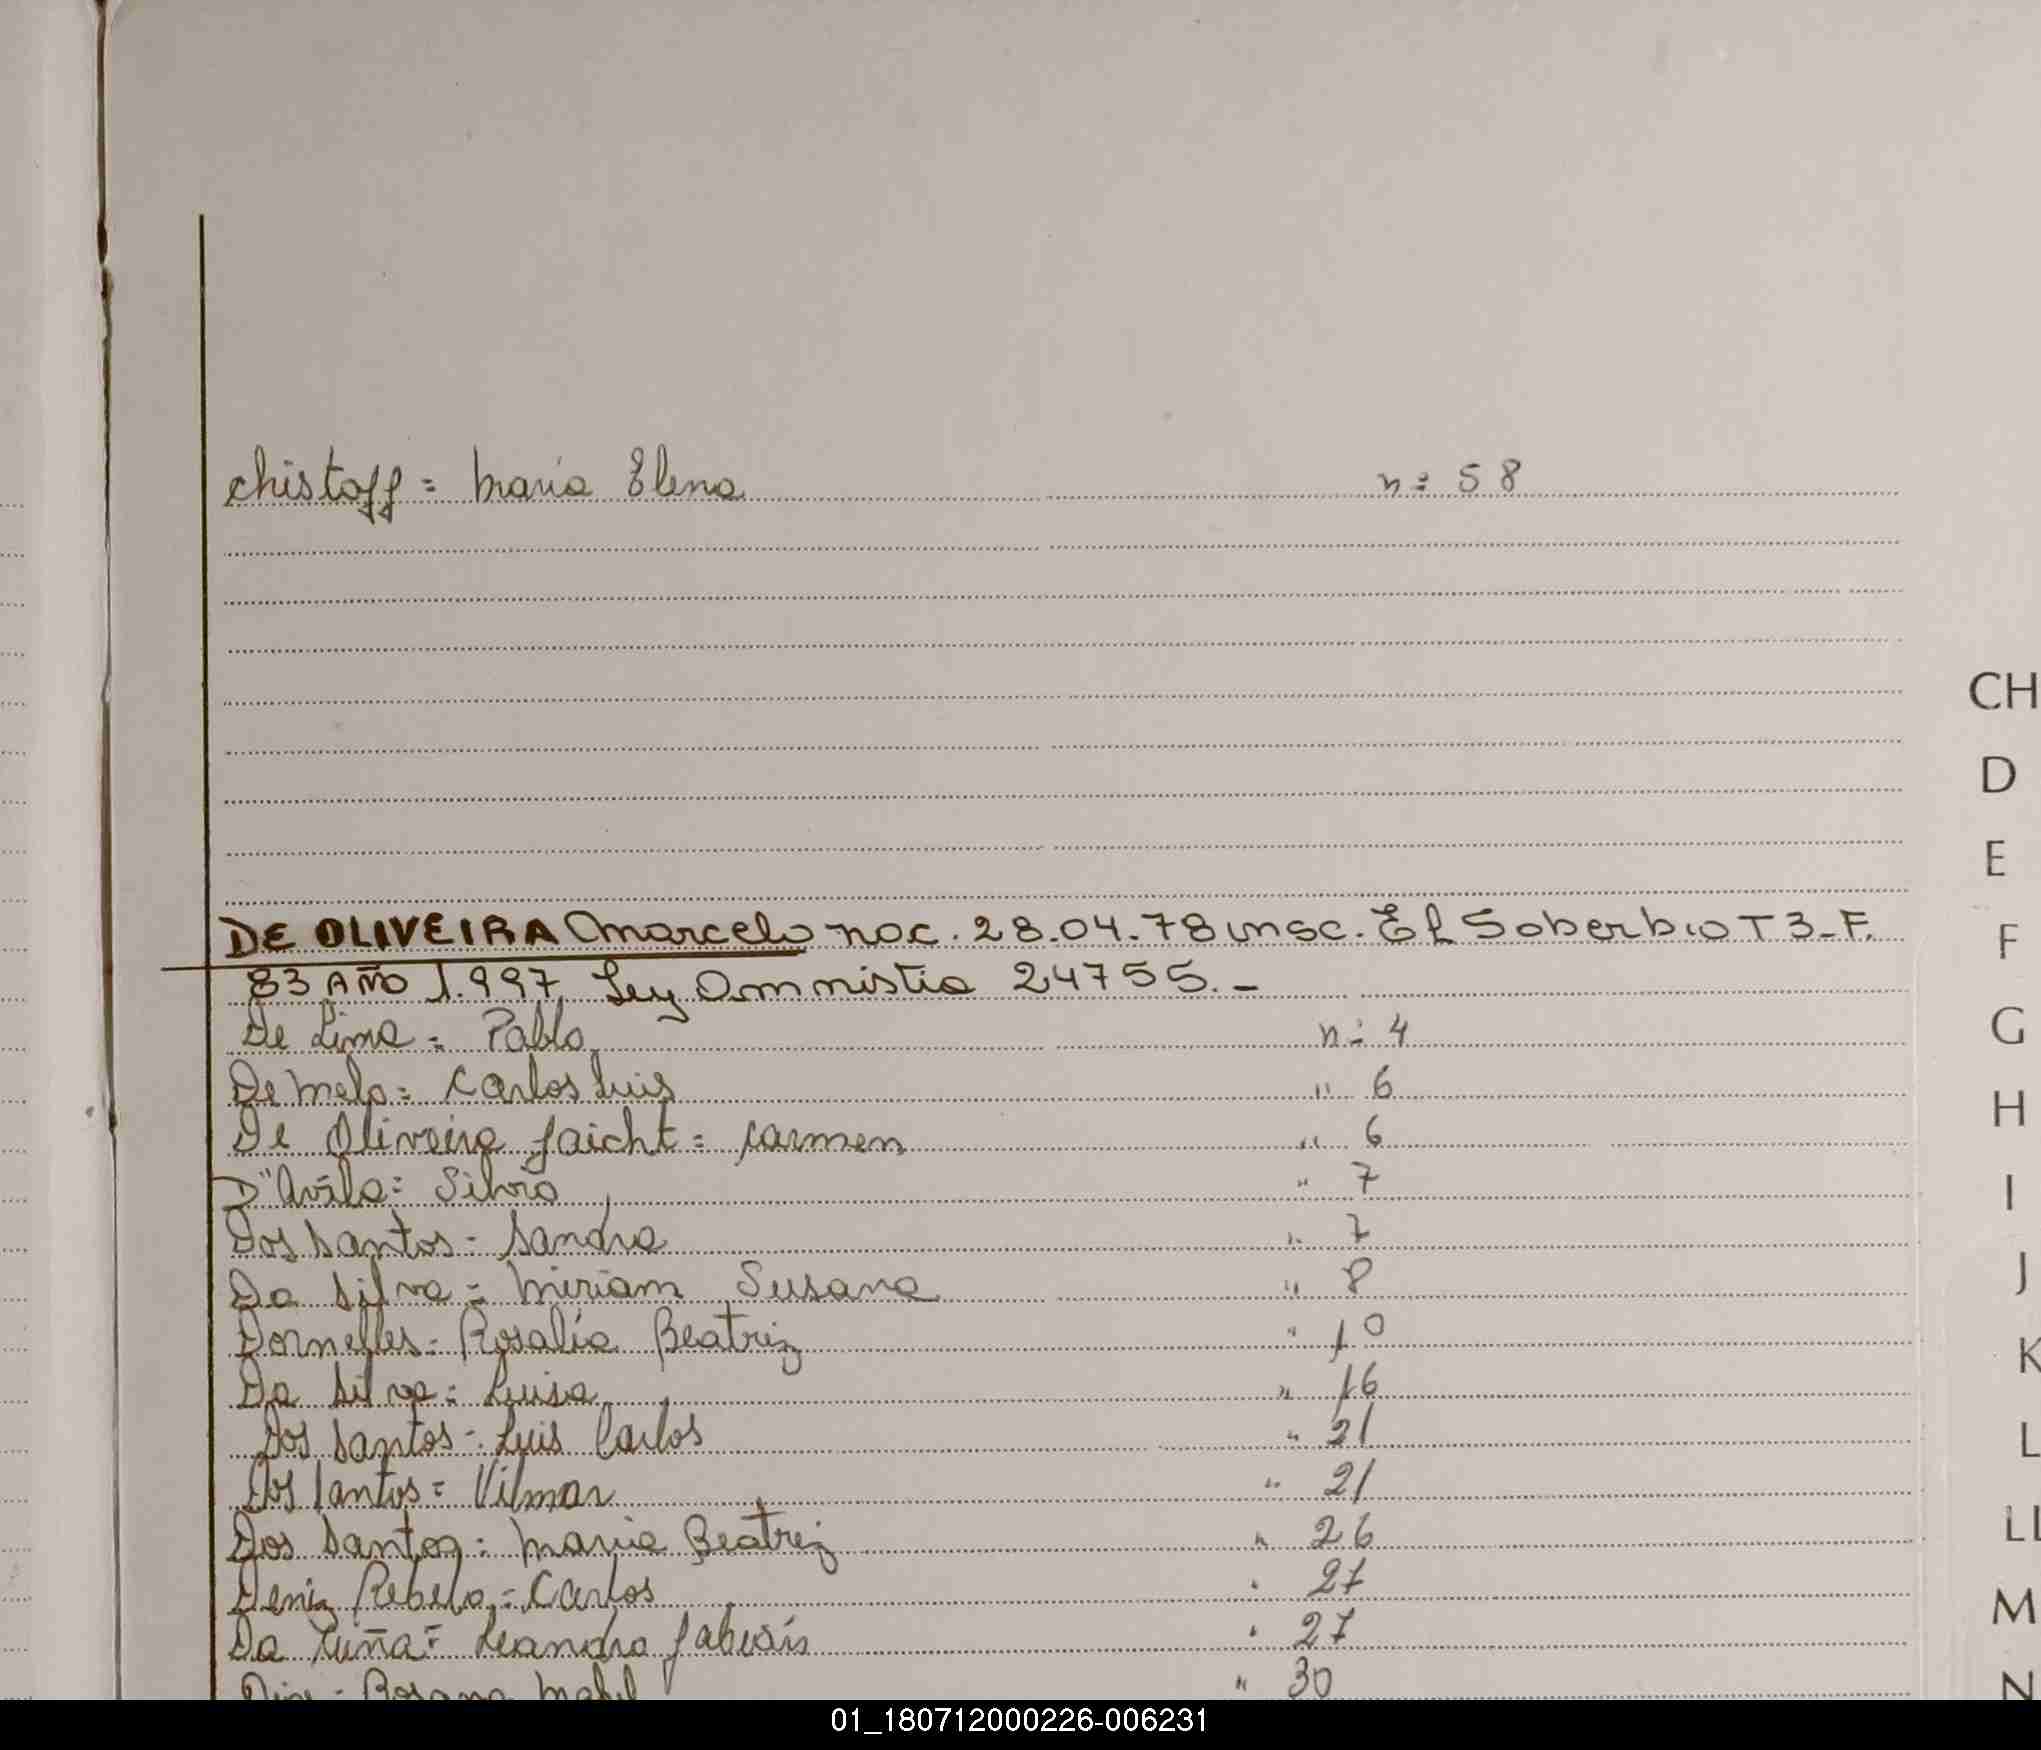 Chistoff = Maria Elena n= 58
CH
D
E
F
DE OLIVEIRA Marcelo nac. 28.04.78 insc. El Soberbio T 3-F.
83 AÑO 1.997 Ley Amnistia 24755.-
G
De Lima = Pablo n= 4
De Melo = Carlos Luis " 6
H
De Oliveira Jaicht = Carmen " 6
D"Avila = Silvio " 7
I
Dos Santos = Sandra " 7
Da Silva = Miriam Susana " 8
J
Dornelles = Rosalia Beatriz " 10
K
Da Silva = Luisa " 16
Dos Santos = Luis Carlos " 21
L
Dos Santos = Vilmar " 21
Dos Santos = Maria Beatriz " 26
LL
Deniz Rebelo = Carlos " 27
M
Da Luña = Leandro " 27
Rosana Mabel " 30
N
01_180712000226-006231